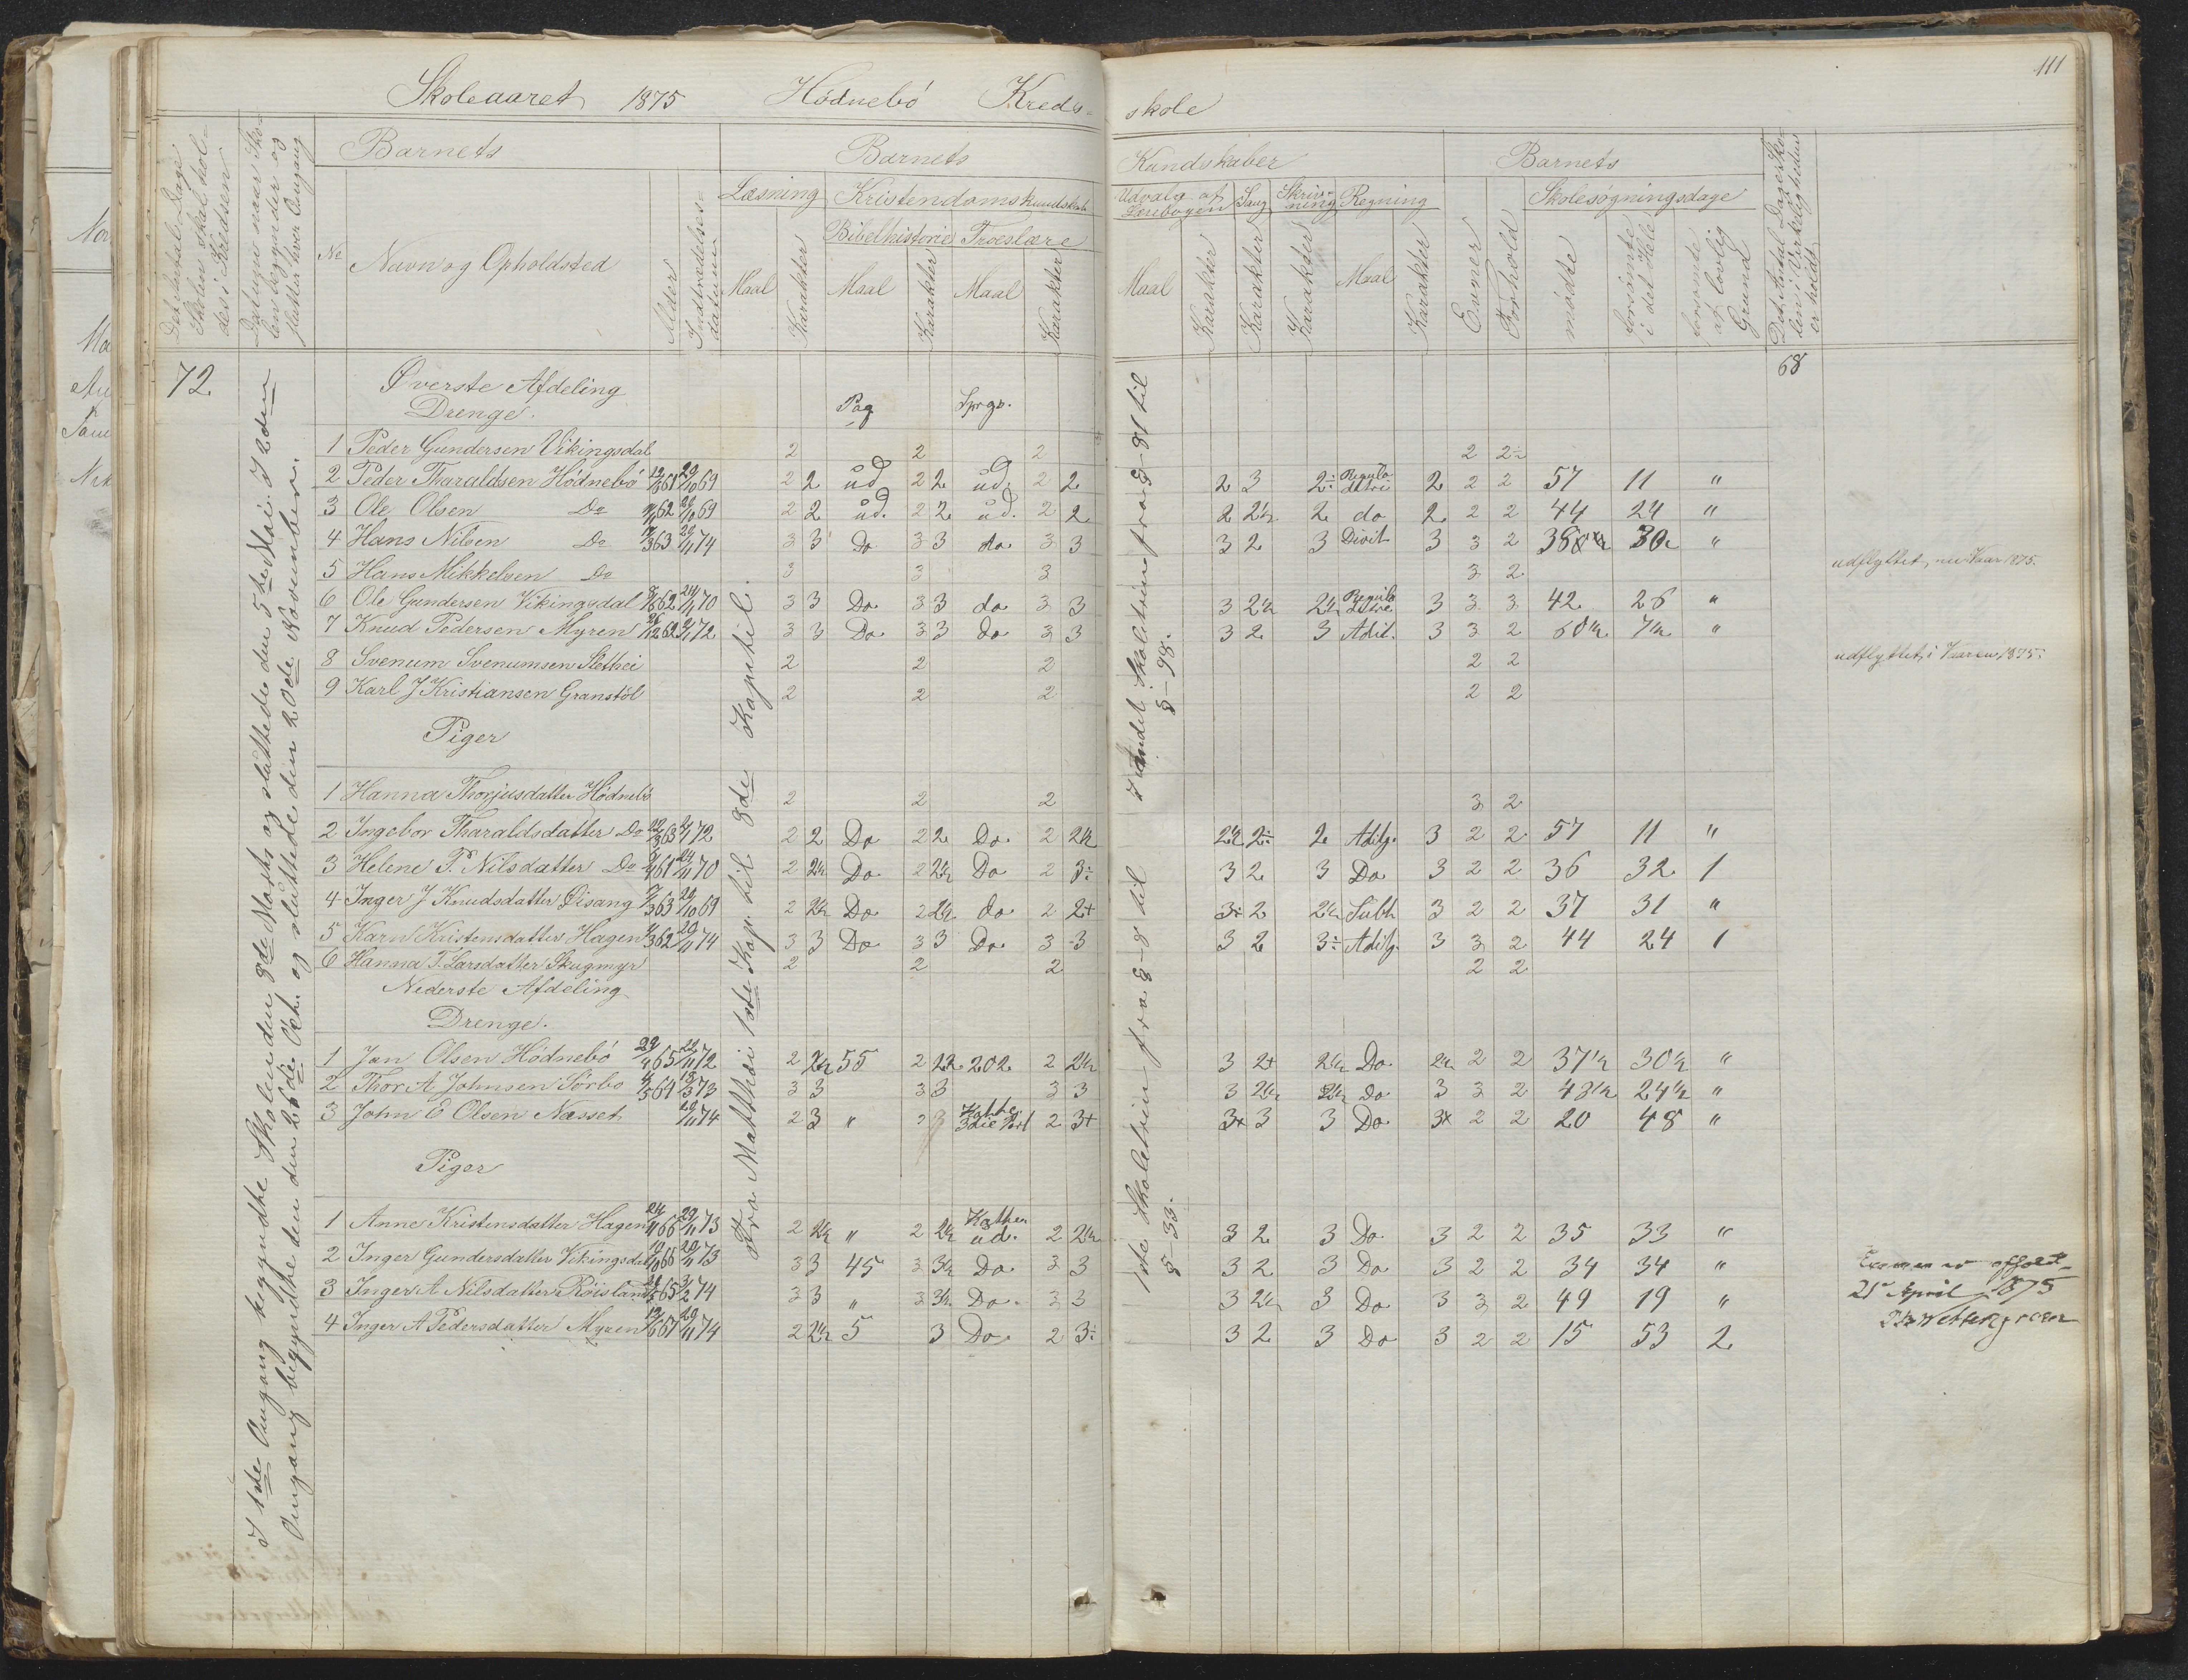 111
Skoleaaret 1875 Hödnebö Kreds- skole
Det Antal Dage Skolen skal holdes i Kredsen
Datagen naar Skolen begynder og slutter hver Omgang
Barnets
No
Navn og Opholdsted
Alder
Indtrædelsesdatum
Barnets
Læsning
Maal
Karakter
Kristendomskundskab
Bibelhistorie
Maal
Karakter
Troeslære
Maal
Karakter
Kundskaber
Udvalg af Læsebogen
Maal
Karakter
Sang
Karakter
Skrivning
Karakter
Regning
Maal
Karakter
Barnets
Evner
Forhold
Skolesøgningsdage
mödte
forsömte i det Hele
forsömte af lovlig Grund
Det Antal Dage Skolen i Virkeligheden er holdt
72. 68
I 1ste Omgang begyndte Skolen den 8de Marts og sluttede den 5te Mai. I 2den
Omgang begyndte den 26de Okt. og sluttede den 20de November.
Fra Matthæi 1ste Kap. til 8de Kapitel.
1ste Skoletrin fra § 8 til
§ 33.
I Andet Skoletrin fra § 81 til
§ 98.
Øverste Afdeling
Drenge. Pag Sprgs.
1 Peder Gundersen Vikingsdal 2 2 2 2 2÷
2 Peder Tharaldsen Hödnebö 12/8 61 29/10 69 2 2 ud 2 2 ud 2 2 2 3 2÷ Regulodetri 2 2 2 57 11 "
3 Ole Olsen Do 62 29/10 69 2 2 ud. 2 2 ud. 2 2 2 2½ 2 do 2 2 2 44 24 "
4 Hans Nilsen Do 63 29/11 74 3 3 Do 3 3 do 3 3 3 2 3 Divit 3 3 2 38 30 "
5 Hans Mikkelsen Do 3 3 3 3 2 udflyttet, 1875.
6 Ole Gundersen Vikingsdal 62 24/11 70 3 3 Do 3 3 do 3 3 3 2½ 2½ Regulodetri 3 3 3 42 26 "
7 Knud Pedersen Myren 62 72 3 3 Do 3 3 do 3 3 3 2 3 Adit. 3 3 2 60½ 7½ "
8 Svenum Svenumsen Slethei 2 2 2 2 2 udflyttet i Vaaren 1875.
9 Karl J Kristiansen Granstöl 2 2 2 2 2
Piger
1 Hanna Thorjusdatter Hödnebö 2 2 2 3 2
2 Ingebor Tharaldsdatter Do 63 72 2 2 Do 2 2 Do. 2 2½ 2½ 2÷ 2 Adit. 3 2 2 57 11 "
3 Helene P. Nilsdatter Do 61 24/11 70 2 2½ Do 2 2½ Do 2 3÷ 3 2 3 Do 3 2 2 36 32 1
4 Inger J Knudsdatter Øisang 63 29/10 69 2 2½ Do 2 2½ do 2 2+ 3+ 2 2½ Subt 3 2 2 37 31 "
5 Karn Kristensdatter Hagen 62 29/11 74 3 3 Do 3 3 Do 3 3 3 2 3÷ Adit. 3 3 2 44 24 1
6 Hanna T. Larsdatter Skugmyr 2 2 2 2 2
Nederste Afdeling
Drenge.
1 Jan Olsen Hödnebö 65 22/11 72 2 2½ 55 2 2½ 202 2 2½ 3 2+ 2½ Do 2½ 2 2 37½ 30½ "
2 Thor A Johnsen Sörbö 64 73 3 3 3 3 3 3 3 2½ 2½ Do 3 3 2 43½ 24½ "
3 John E Olsen Næsset 29/11 74 2 3 " 2 3die Part 2 3+ 3+ 3 3 Do 3+ 2 2 20 48 "
Piger
1 Anne Kristensdatter Hagen 24/11 66 29/11 73 2 2½ " 2 2½ Kathe ud. 2 2½ 3 2 3 Do 3 2 2 35 33 "
2 Inger Gundersdatter Vikingsdal 66 29/11 73 3 3 45 3 3½ Do. 3 3 3 2 3 Do 3 2 2 34 34 "
3 Inger A Nilsdatter Röisland 65 74 3 3 " 3 3½ Do. 3 3 3 2½ 3 Do 3 3 2 49 19 "
4 Inger A Pedersdatter Myren 67 29/11 74 2 2½ 5 3 Do. 2 3÷ 3 2 3 Do 3 2 2 15 53 2
Examen er afholdt
21 April 1875
Wettergreen